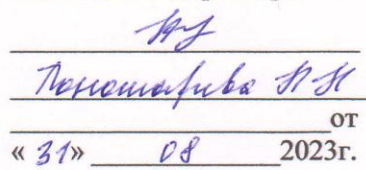 Пономарева Н Н
от
« 31» 08 2023г.